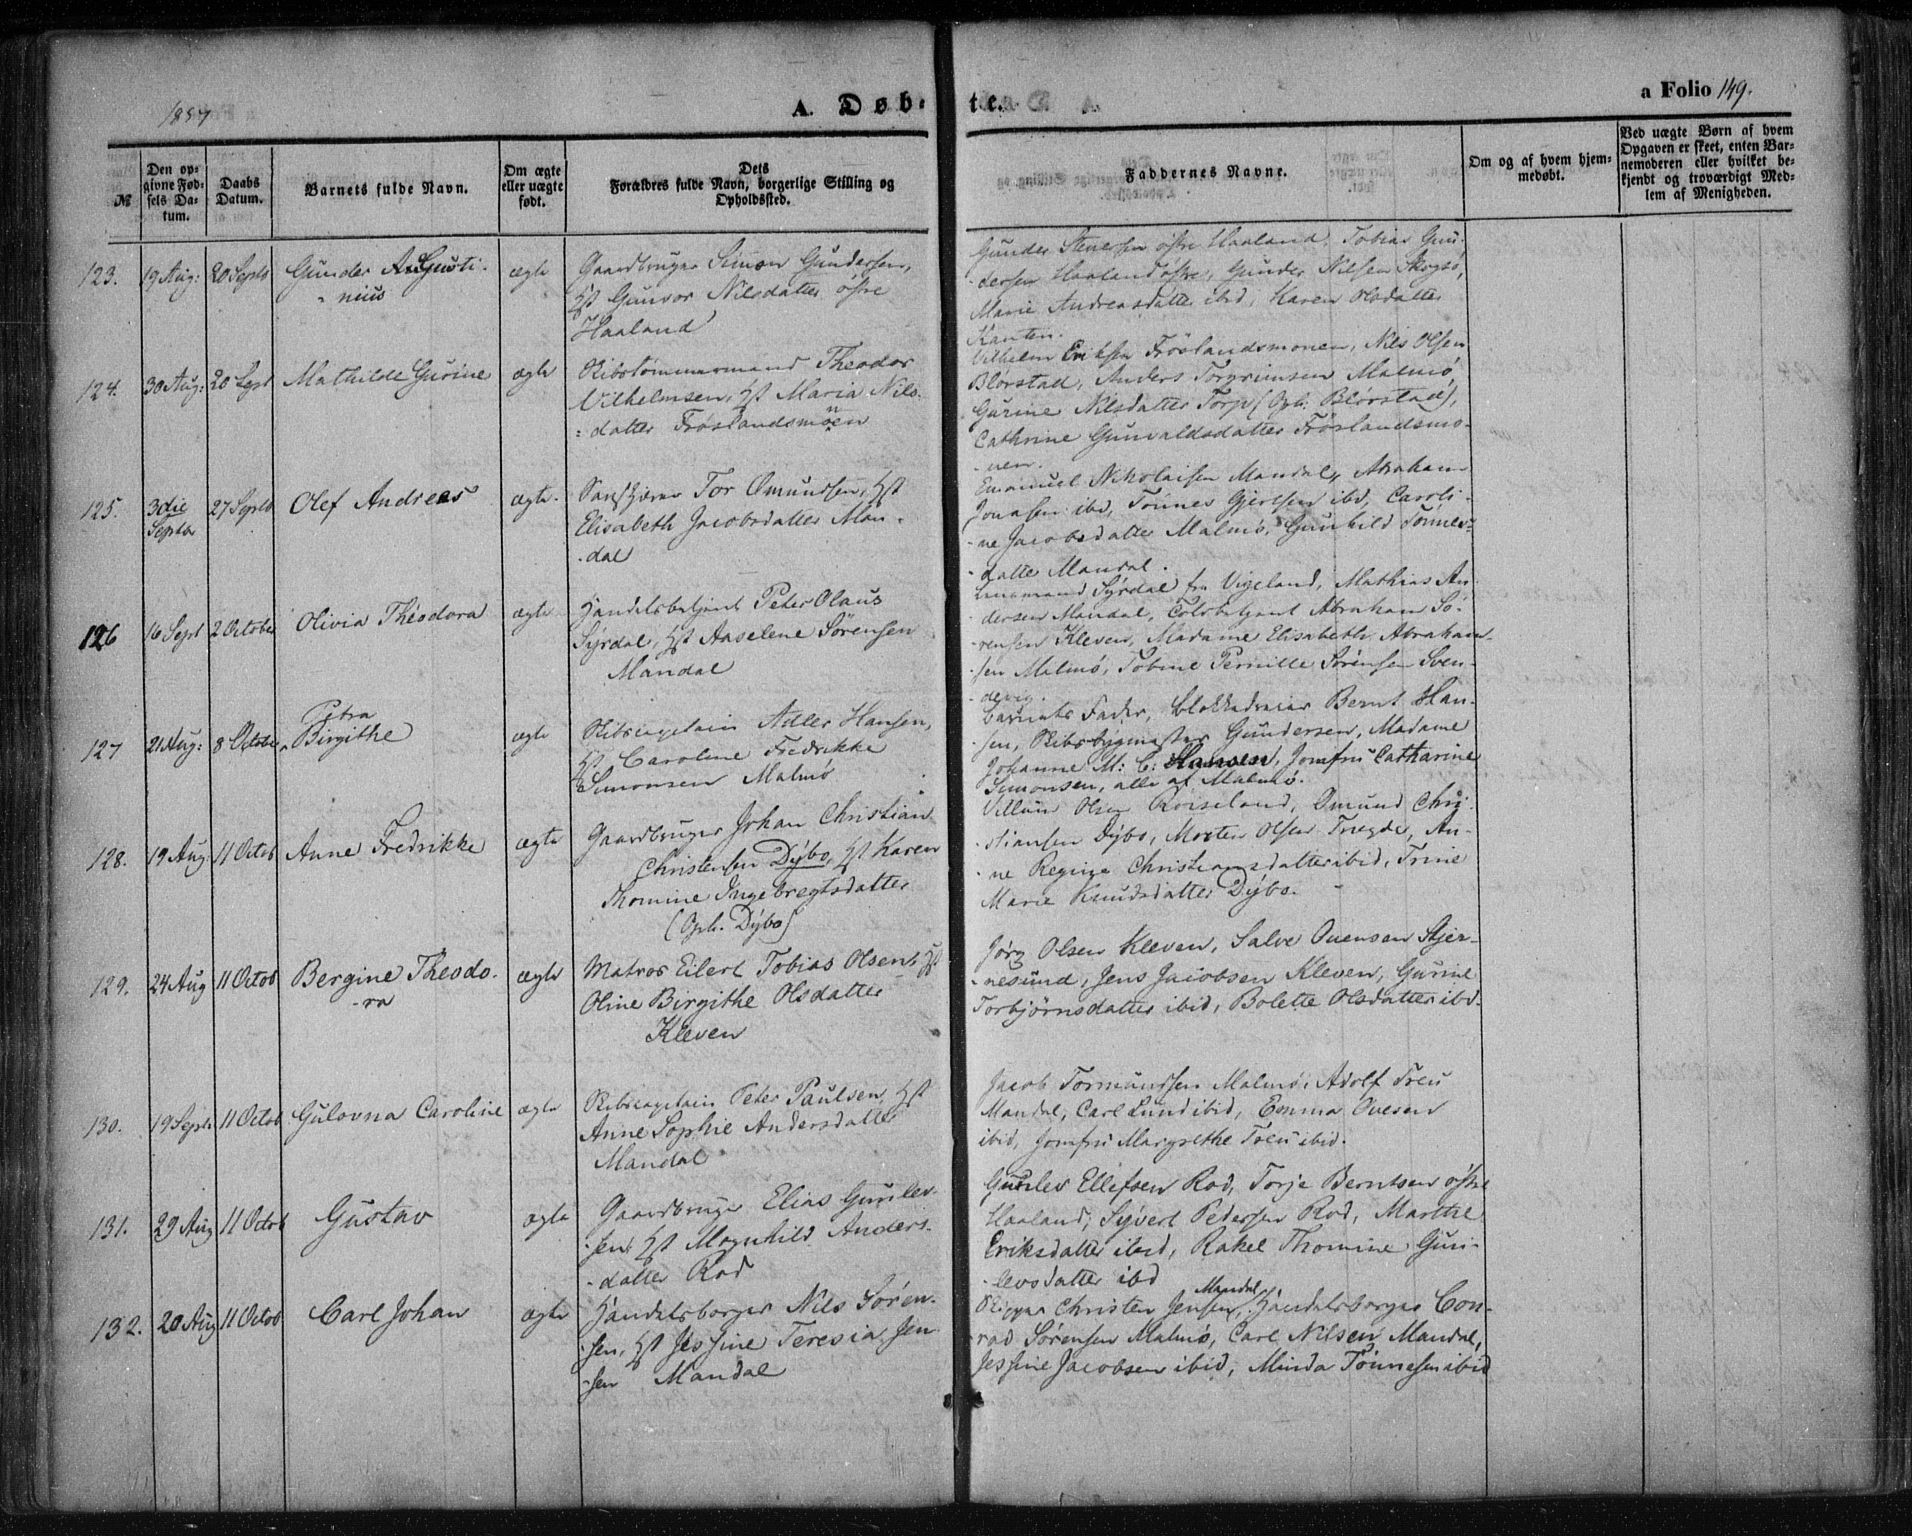 1857
A. Døbte.
a Folio 149.
№
Den opgivne Fødsels Datum.
Daabs Datum.
Barnets fulde Navn.
Om ægte eller uægte født.
Dets Forældres fulde Navn, borgerlige Stilling og Opholdssted.
Faddernes Navne.
Om og af hvem hjemmedøbt.
Ved uægte Børn af hvem Opgaven er skeet, enten Barnemoderen eller hvilket bekjendt og troværdigt Medlem af Menigheden.
123. 19 Aug: 20 Septb Gunder Augusti-
nius
ægte
Gaardbruger Simon Gundersen,
Hst Gunvor Nilsdatter østre
Haaland
Gunder Stenersen østre Haaland, Tobias Gun-
dersen Haaland østre, Gunder Nilsen Skogsø,
Marie Andreasdatter ibid, Karen Olsdatter
Kanten.
124. 30 Aug: 20 Sept Mathilde Gurine ægte
Skibstømmermand Theodor
Vilhelmsen, Hst Maria Nils-
datter Frøslandsmonen
Vilhelm Eriksen Frøslandsmonen, Nils Olsen
Blørstad, Anders Torgrimsen Malmø
Gurine Nilsdatter Torp (Oph: Blørstad),
Cathrine Gunvaldsdatter Frøslandsmo-
nen.
125. 3die Septbr 27 Septb Olef Andreas ægte
Tor Omundsen, Hst
Elisabeth Jacobsdatter Man-
dal
Emanuel Nikolaisen Mandal, Abraham
Jonasen ibid, Tønnes Gjertsen ibid, Caroli-
ne Jacobsdatter Malmø, Gunhild Tønnes-
datte Mandal.
126 16 Sept 2 October Olivia Theodora ægte
Handelsbetjent Peter Olaus
Syrdal, Hst Aaselene Sørensen
Mandal
Syrdal fra Vigeland, Mathias An-
dersen Mandal, Toldbetjent Abraham Sø-
rensen Kleven, Madame Elisabeth Abraham-
sen Malmø, Tobine Pernille Sørensen Sven-
devig.
127 21 Aug: 8 October Petra
Birgithe
ægte
Skibscaptain Adler Hansen,
Hst Caroline Fredrikke
Simonsen Malmø
Barnets Fader, Blokkedreier Bernt Han-
sen, Skibsbygmester Gundersen, Madame
Johanne M: C: Hansen, Jomfru Catharine
Simonsen, alle af Malmø.
128. 19 Aug: 11 Octob Anne Fredrikke ægte
Gaardbruger Johan Christian
Christensen Dybo, Hst Karen
Thomine Ingebregtsdatter
(Oph. Dybo)
Villum Olsen Røiseland, Omund Chri-
stiansen Dybo, Morten Olsen Tregde, An-
ne Regine Christiansdatter ibid, Trine
Marie Knudsdatter Dybo.
129. 24 Aug 11 Octob Bergine Theodo-
ra
ægte
Matros Eilert Tobias Olsen, Hst
Oline Birgithe Olsdatter
Kleven
Jørg Olsen Kleven, Salve Ouensen Stjer-
nesund, Jens Jacobsen Kleven, Gurine
Torbjørnsdatter ibid, Bolette Olsdatter ibd.
130. 19 Septb 11 Octob Gulovna Caroline ægte
Skibscaptain Peter Paulsen, Hst
Anne Sophie Andersdatter
Mandal
Jacob Tormundsen Malmø, Adolf Treu
Mandal, Carl Lund ibid, Emma Ouesen
ibid, Jomfru Margrethe Treu ibid.
131. 29 Aug 11 Octob Gustav ægte
Gaardbruger Elias Gunlev-
sen, Hst Magnhild Anders-
datter Rod
Gunlev Ellefsen Rod, Torje Berntsen østre
Haaland, Syvert Pedersen Rod, Marthe
Eriksdatter ibid, Rakel Thomine Gun-
levsdatter ibd
132. 20 Aug 11 Octob Carl Johan ægte
Handelsborger Nils Søren-
sen, Hst Jessine Teresia Jen-
sen Mandal
Skipper Christen Jensen Mandal, Handelsborger Con-
rad Sørensen Malmø, Carl Nilsen Mandal,
Jessine Jacobsen ibid, Minda Tønnesen ibid